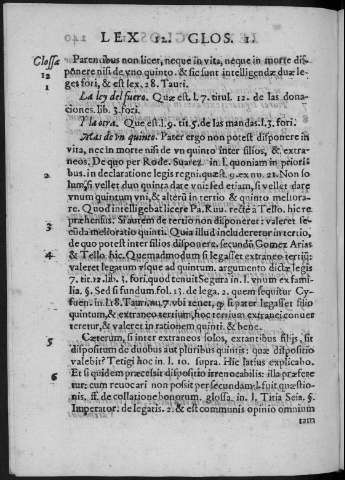 LEX 12. GLOS. 1.
Glossa Parentibus non licet, neque in vita, neque in morte dis-
12 ponere nisi de vno quinto. & sic sunt intelligendæ duæ le-
1 ges fori, & est lex. 28. Tauri.
La ley del fuero. Quæ est l. 7. titul. 12. de las dona-
ciones. lib. 3. fori.
Y la otra. Que est l. 9. tit. 5. de las mandas. l. 3. fori.
Mas de vn quinto. Pater ergo non potest disponere in
vita, nec in morte nisi de vn quinto inter filios, & extra-
neos. De quo per Rode. Suarez in l. quoniam in priori
2 bus. in declaratione legis regni. quæst. 9. ex nu. 21. Non so
lum, si vellet duo quinta dare vni: sed etiam, si vellet dare
vnum quintum vni, & alterũ in tertio & quinto meliora-
re. Quod intelligebat licere Pa. Ruu. rectè à Tello. hic re
præhensus. Si autem de tertio non disponeret: valeret se-
3 cũda melioratio quinti. Quia illud includeretur in tertio,
de quo potest inter filios disponere. secundũ Gomez Arias
4 & Tello hic. Quemadmodum si legasset extraneo tertiũ:
valeret legatum vsque ad quintum. argumento dictæ legis
7. tit. 12. lib. 3. fori. quod tenuit Segura in. l. vnum ex fami-
lia. §. Sed si fundum fol. 13. de lega. 2. quem sequitur Cy-
fuen. in. l. 28. Tauri. nu. 7. vbi tenet, q̃ si pater legasset filio
quintum, & extraneo tertium, hoc tertium extranei conuer
teretur, & valeret in rationem quinti. & bene.
5 Cæterum, si inter extraneos solos, extantibus filijs, sit
dispositum de duobus aut pluribus quintis: quæ dispositio
valebit? Tetigi hoc in l. 10. supra. Hic latius explicabo.
6 Et si quidem præcessit dispositio irreuocabilis: illa præfere
tur: cum reuocari non possit per secundam. l. fuit quæstio-
nis. ff. de collatione bonorum. glossa. in. l. Titia Seia. §.
Imperator. de legatis. 2. & est communis opinio omnium